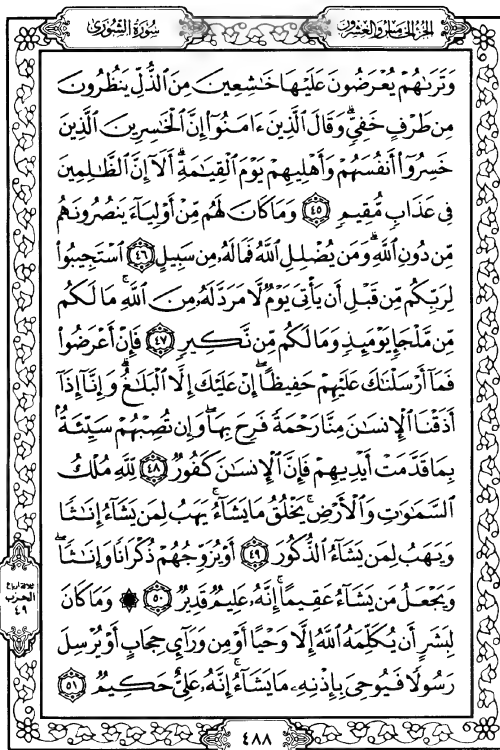 الجزء الخامس والعشرون
سورة الشورى
وَتَرَىٰهُمْ يُعْرَضُونَ عَلَيْهَا خَٰشِعِينَ مِنَ ٱلذُّلِّ يَنظُرُونَ
مِن طَرْفٍ خَفِىٍّۗ وَقَالَ ٱلَّذِينَ ءَامَنُوٓا۟ إِنَّ ٱلْخَٰسِرِينَ ٱلَّذِينَ
خَسِرُوٓا۟ أَنفُسَهُمْ وَأَهْلِيهِمْ يَوْمَ ٱلْقِيَٰمَةِۗ أَلَآ إِنَّ ٱلظَّٰلِمِينَ
فِى عَذَابٍ مُّقِيمٍ ٤٥ وَمَا كَانَ لَهُم مِّنْ أَوْلِيَآءَ يَنصُرُونَهُم
مِّن دُونِ ٱللَّهِۗ وَمَن يُضْلِلِ ٱللَّهُ فَمَا لَهُۥ مِن سَبِيلٍ ٤٦ ٱسْتَجِيبُوا۟
لِرَبِّكُم مِّن قَبْلِ أَن يَأْتِىَ يَوْمٌ لَّا مَرَدَّ لَهُۥ مِنَ ٱللَّهِۚ مَا لَكُم
مِّن مَّلْجَإٍ يَوْمَئِذٍ وَمَا لَكُم مِّن نَّكِيرٍ ٤٧ فَإِنْ أَعْرَضُوا۟
فَمَآ أَرْسَلْنَٰكَ عَلَيْهِمْ حَفِيظًاۖ إِنْ عَلَيْكَ إِلَّا ٱلْبَلَٰغُۗ وَإِنَّآ إِذَآ
أَذَقْنَا ٱلْإِنسَٰنَ مِنَّا رَحْمَةً فَرِحَ بِهَاۖ وَإِن تُصِبْهُمْ سَيِّئَةٌۢ
بِمَا قَدَّمَتْ أَيْدِيهِمْ فَإِنَّ ٱلْإِنسَٰنَ كَفُورٌ ٤٨ لِّلَّهِ مُلْكُ
ٱلسَّمَٰوَٰتِ وَٱلْأَرْضِۚ يَخْلُقُ مَا يَشَآءُۚ يَهَبُ لِمَن يَشَآءُ إِنَٰثًا
وَيَهَبُ لِمَن يَشَآءُ ٱلذُّكُورَ ٤٩ أَوْ يُزَوِّجُهُمْ ذُكْرَانًا وَإِنَٰثًاۖ
وَيَجْعَلُ مَن يَشَآءُ عَقِيمًاۚ إِنَّهُۥ عَلِيمٌ قَدِيرٌ ٥٠ وَمَا كَانَ
لِبَشَرٍ أَن يُكَلِّمَهُ ٱللَّهُ إِلَّا وَحْيًا أَوْ مِن وَرَآئِ حِجَابٍ أَوْ يُرْسِلَ
رَسُولًا فَيُوحِىَ بِإِذْنِهِۦ مَا يَشَآءُۚ إِنَّهُۥ عَلِىٌّ حَكِيمٌ ٥١
ثلاثة أرباع
الحزب
٤٩
٤٨٨